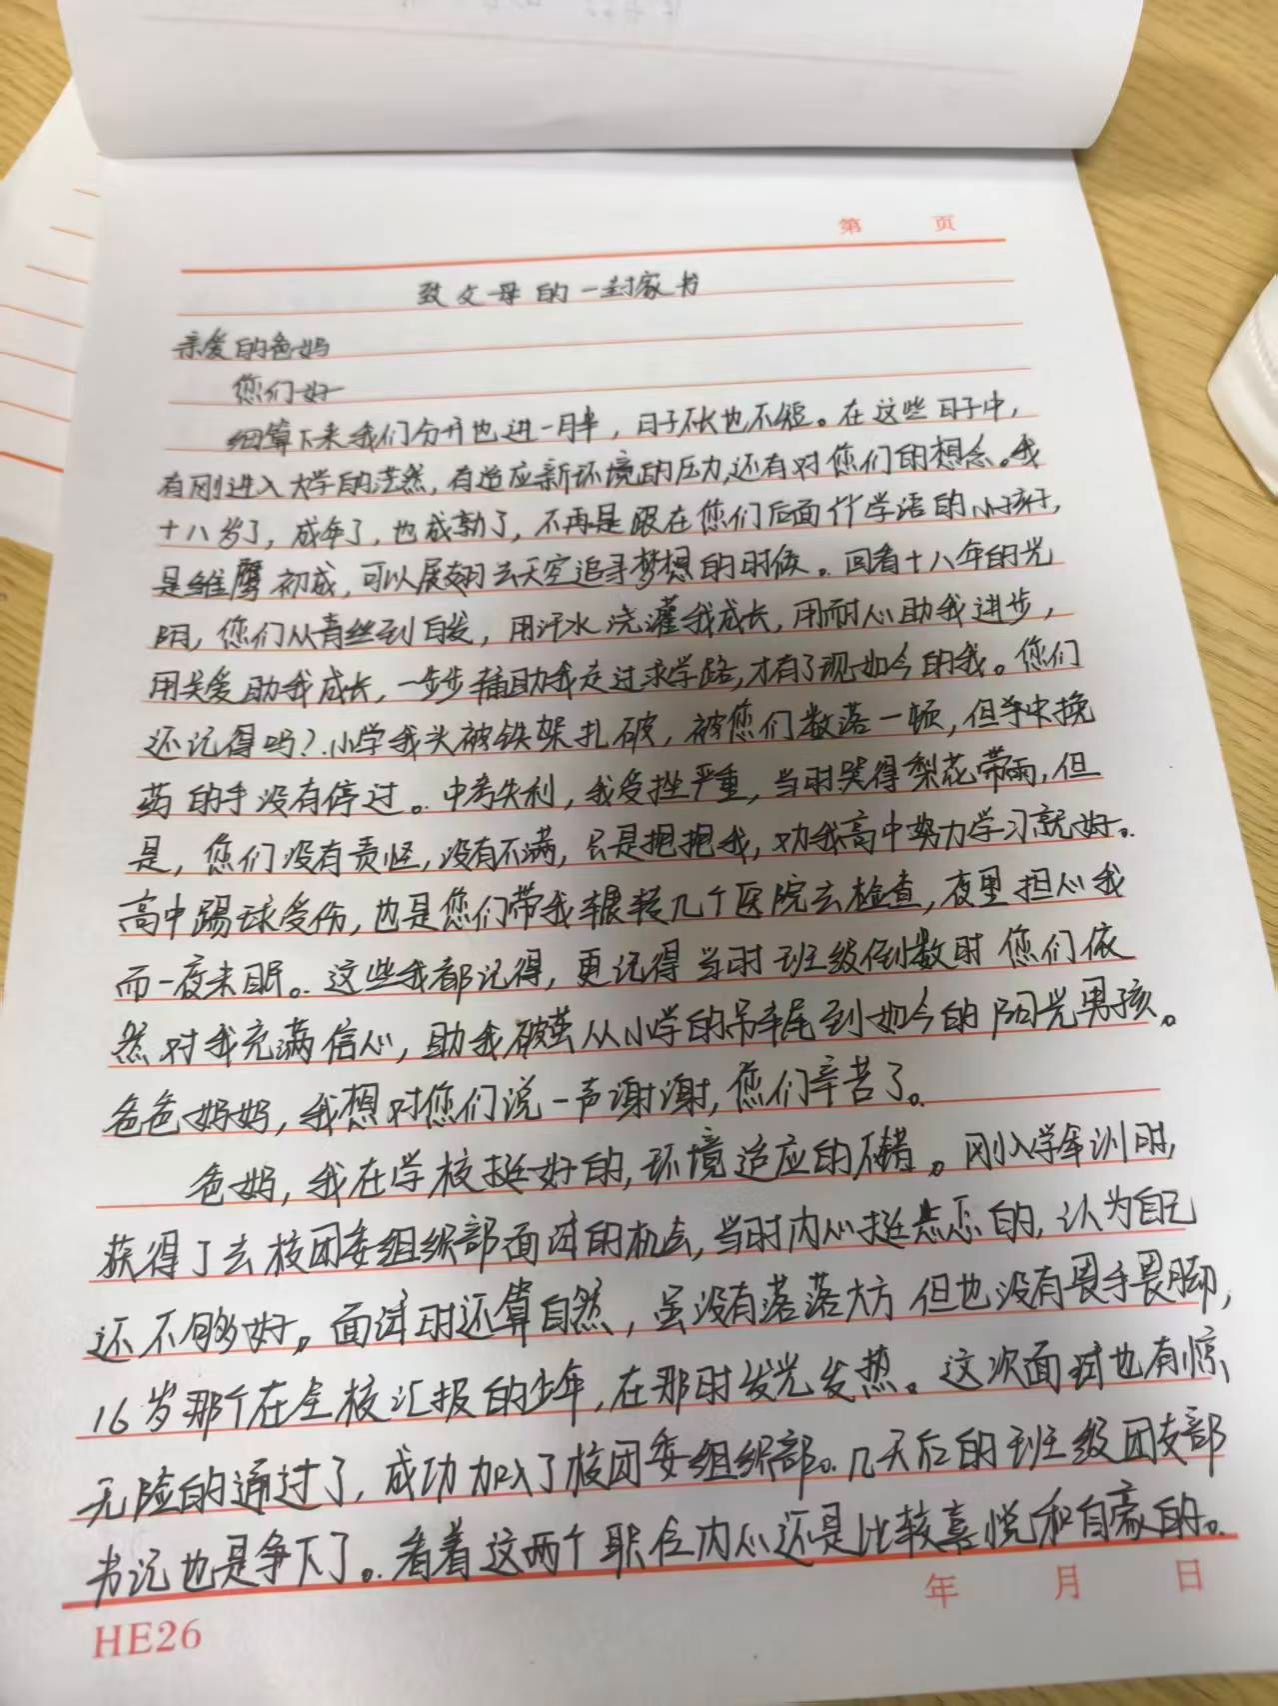 第 页
致父母的一封家书
亲爱的爸妈
您们好
细算下来我们分开也进一月半，日子不长也不短。在这些日子中，
有刚进入大学的茫然，有适应新环境的压力，还有对您们的想念。我
十八岁了，成年了，也成熟了，不再是跟在您们后面作学语的小孩子，
是雏鹰初成，可以展翅去天空追寻梦想的时候。回看十八年的光
阴，您们从青丝到白发，用汗水浇灌我成长，用耐心助我进步，
用关爱助我成长，一步步辅助我走过求学路，才有了现如今的我。您们
还记得吗？小学我头被铁架扎破，被您们数落一顿，但手中挽
药的手没有停过。中考失利，我受挫严重，当时哭得梨花带雨，但
是，您们没有责怪，没有不满，只是抱抱我，劝我高中努力学习就好。
高中踢球受伤，也是您们带我辗转几个医院去检查，夜里担心我
而一夜未眠。这些我都记得，更记得当时班级倒数时您们依
然对我充满信心，助我破茧从小学的吊车尾到如今的阳光男孩。
爸爸妈妈，我想对您们说一声谢谢，您们辛苦了。
爸妈，我在学校挺好的，环境适应的不错。刚入学军训时，
获得了去校团委组织部面试的机会，当时内心挺忐忑的，认为自己
还不够好。面试时还算自然，虽没有落落大方但也没有畏手畏脚，
16岁那个在全校汇报的少年，在那时发光发热。这次面试也有惊
无险的通过了，成功加入了校团委组织部。几天后的班级团支部
书记也是争下了。看着这两个职位内心还是比较喜悦和自豪的。
年 月 日
HE26